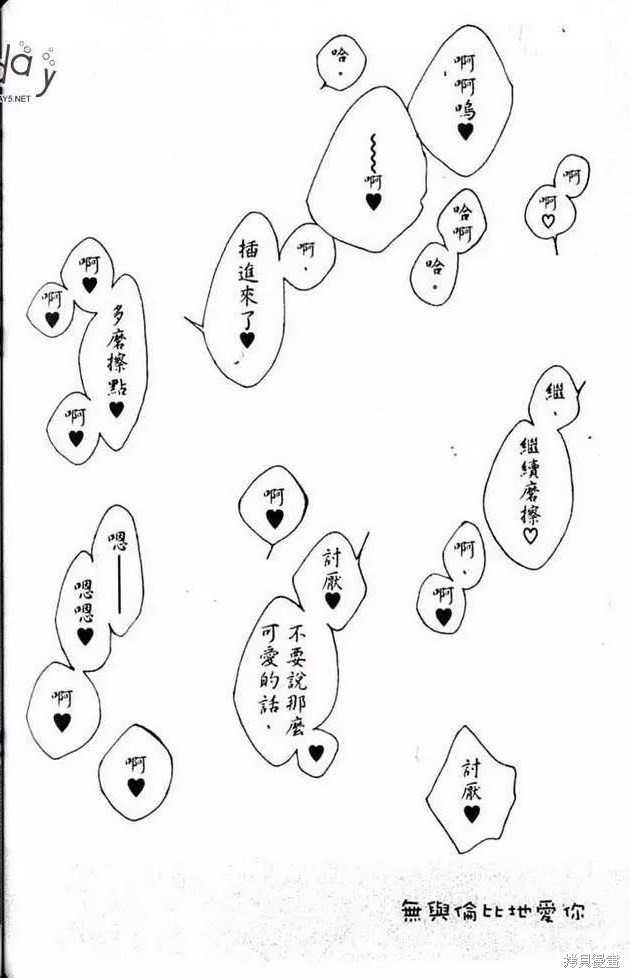 啊啊嗚♥
哈。
～～啊♥
啊
啊♡
哈啊
哈。
啊、
插進來了♥
啊♥
啊♥
多磨擦點♥
啊♥
繼、
繼續磨擦♡
啊、
啊♥
啊♥
討厭♥
不要說那麼
可愛的話、
♥
嗯——
嗯嗯♥
啊♥
啊♥
討厭♥
無與倫比地愛你
day
AY5.NET
拷貝漫畫